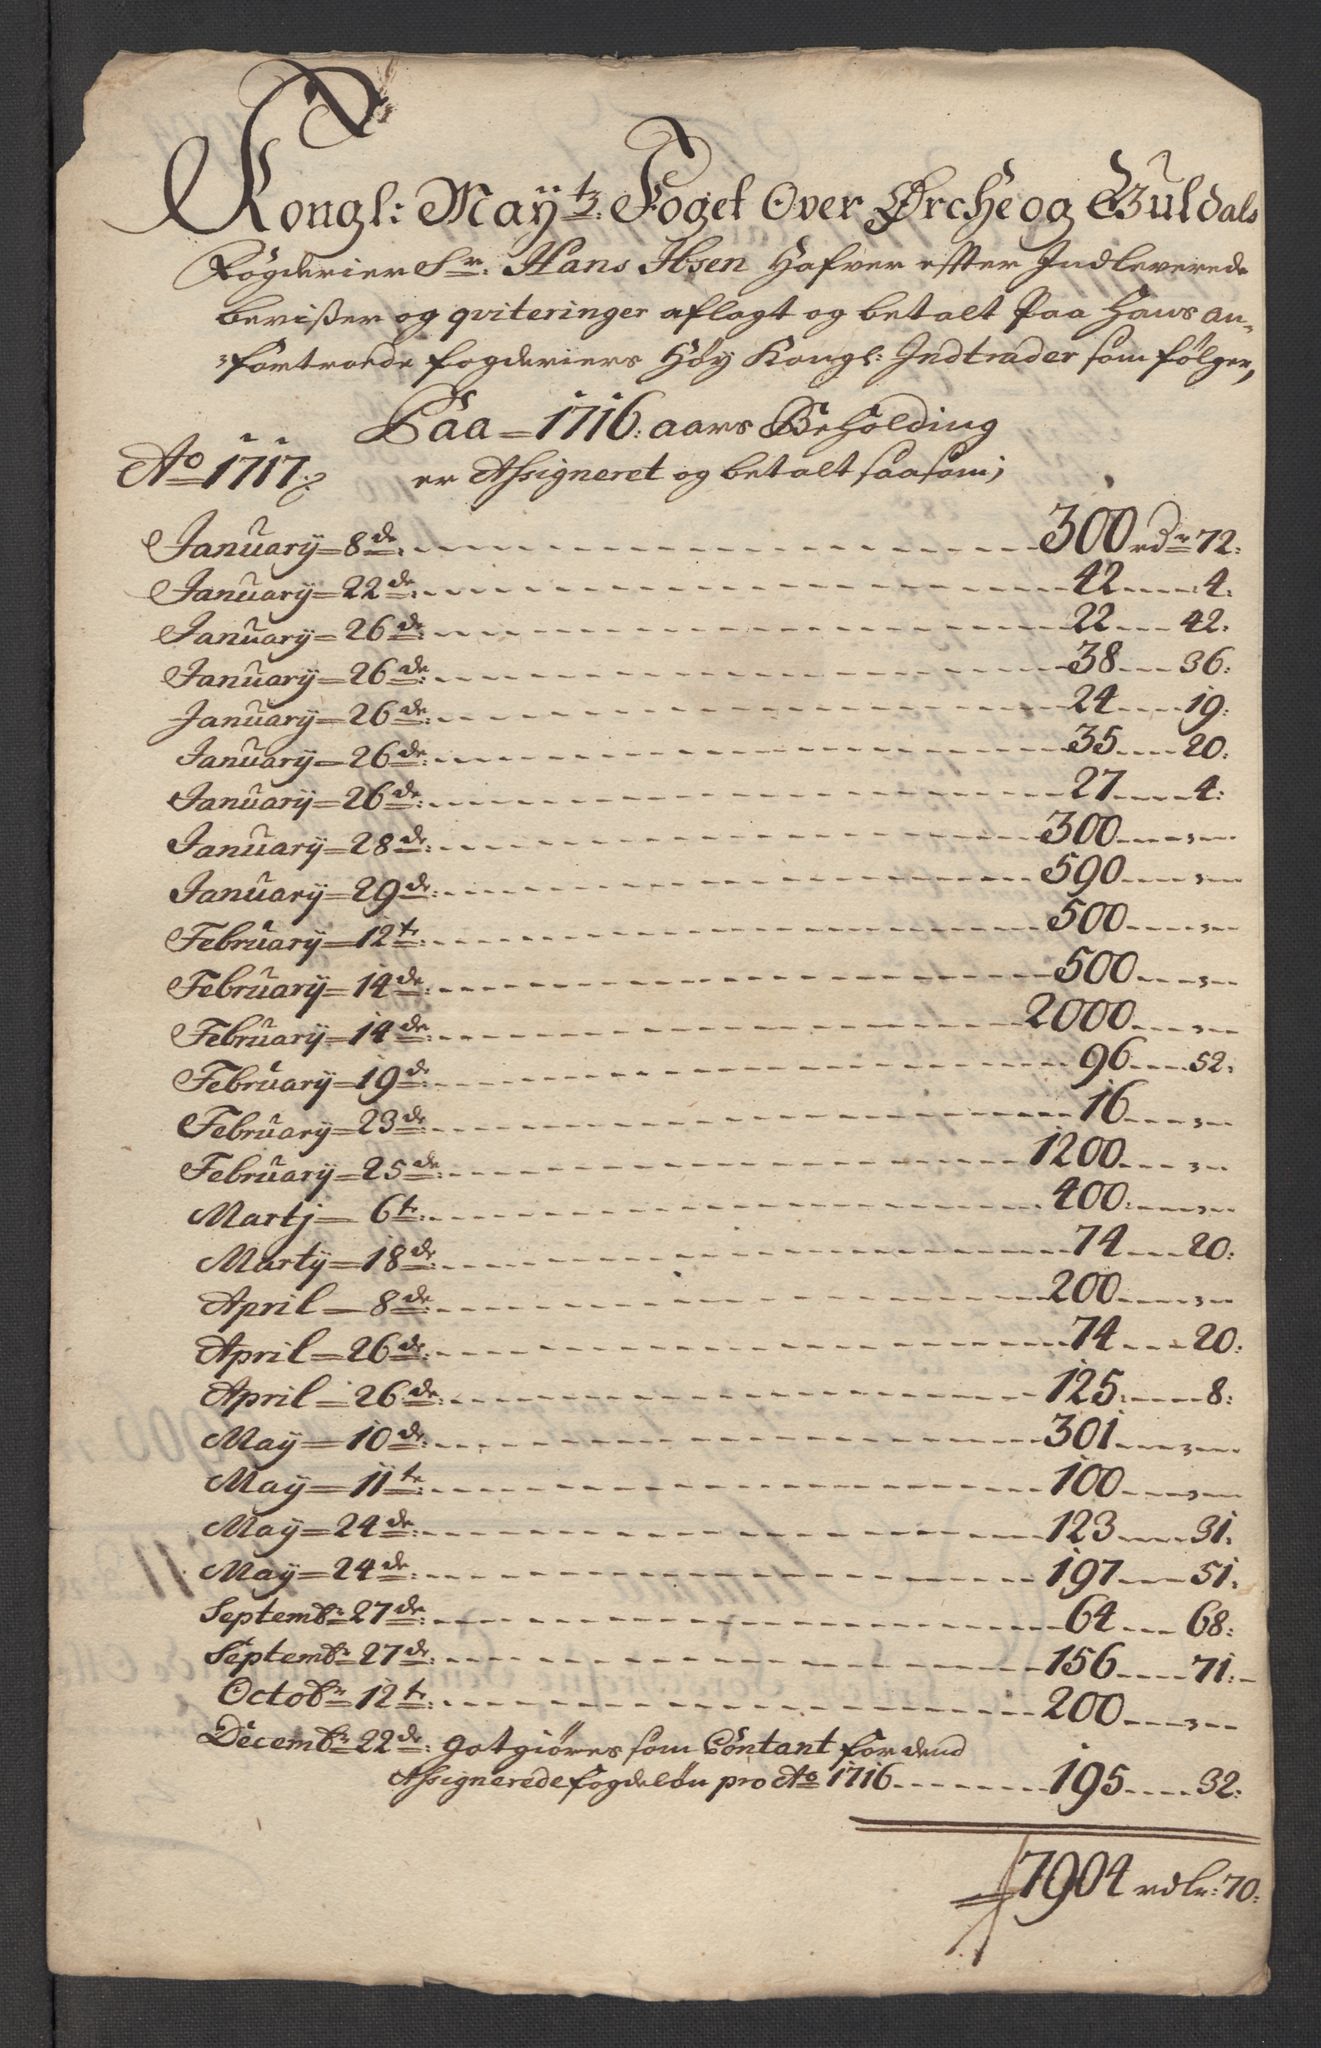 Kongl: May.tz Foget Over Ørche og Guldals
Fogderier Sr. Hans Ibsen Hafver efter Indleverede
bevißer og qviteringer aflagt og betalt Paa Hans an-
fortroede fogderiers Høy Kongl: Indtrader som følger,
Paa = 1716: aars Beholding
Ao 1717: er Assigneret og betalt saasom;
January = 8de: 300 rdr 72:
January = 22de: 42 4:
January = 26de: 22 42:
January = 26de: 38 36:
January = 26de: 24 19:
January = 26de: 35 20:
January = 26de: 27 4:
January = 28de: 300 "
January = 29de: 590 "
February = 12te: 500 "
February = 14de: 500 "
February = 14de: 2000 "
February = 19de: 96 52:
February = 23de: 16 "
February = 25de: 1200 "
Martj = 6te: 400: "
Marty = 18de: 74 20:
April = 8de: 200 "
April = 26de: 74 20:
April = 26de: 125: 8:
May = 10de: 301 "
May = 11te: 100 "
May = 24de: 123 31:
May = 24de: 197 51:
Septembr: 27de: 64 68:
Septembr: 27de: 156 71:
Octobr: 12te: 200 "
Decembr: 22de: gotgiøres som Contant for dend
Assignerede fogdeløn pro Ao 1716 195 32:
7904 rdlr: 70: